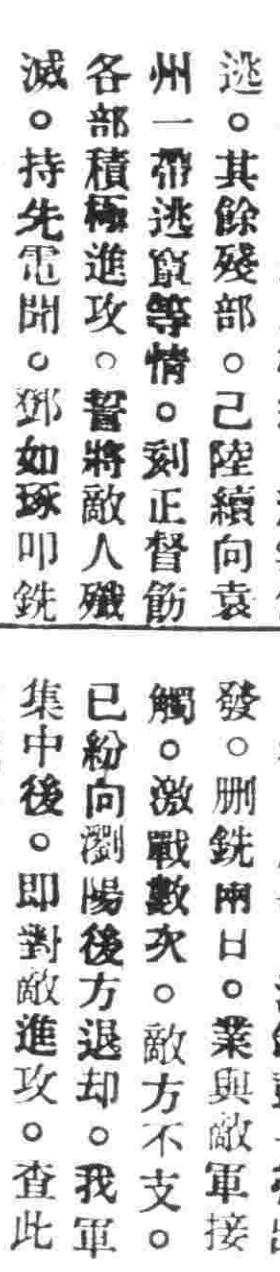 逃。其餘殘部。己陸續向袁
州一帶逃竄等情。刻正督飭
各部積極進攻。誓將敵人殲
滅。持先電聞。鄧如琢叩銑
發。刪銑兩日。業與敵軍接
觸。激戰數次。敵方不支。
已紛向瀏陽後方退却。我軍
集中後。即對敵進攻。查此